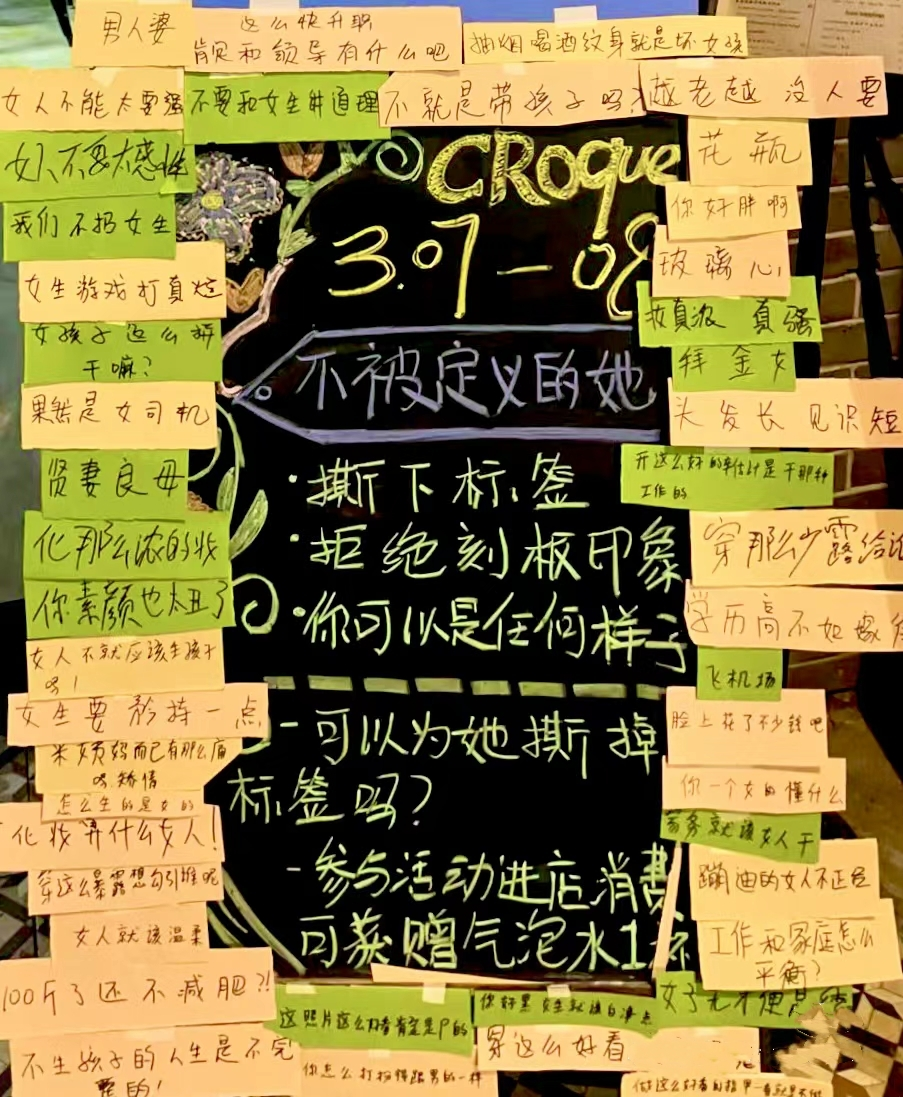 男人婆
这么快升职
肯定和领导有什么吧
抽烟喝酒纹身就是坏女孩
女人不能太要强
不要和女生讲道理
不就是带孩子吗
越老越没人要
女人不要太感性
我们不招女生
女生游戏打真烂
女孩子这么拼
干嘛?
果然是女司机
贤妻良母
化那么浓的妆
你素颜也太丑了
女人不就应该生孩子
吗!
女生要矜持一点
来姨妈而已有那么痛
吗 矫情
怎么生的是女的
化妆算什么女人!
穿这么暴露想勾引谁呢
女人就该温柔
100斤了还不减肥?!
不生孩子的人生是不完
整的!
CRoque
3.07-08
不被定义的她
·撕下标签
·拒绝刻板印象
·你可以是任何样子
-可以为她撕掉
标签吗?
-参与活动进店消费
可获赠气泡水1杯
花瓶
你好胖啊
玻璃心
妆真浓 真骚
拜金女
头发长见识短
开这么好的车估计是干那种
工作的
穿那么少露给
学历高不如嫁
飞机场
脸上花了不少钱吧
你一个女的懂什么
家务就该女人干
蹦迪的女人不正经
工作和家庭怎么
平衡?
女子无才便是德
这照片这么好看肯定是P的
你好黑 女生就该白净点
穿这么好看
你怎么打扮得跟男的一样